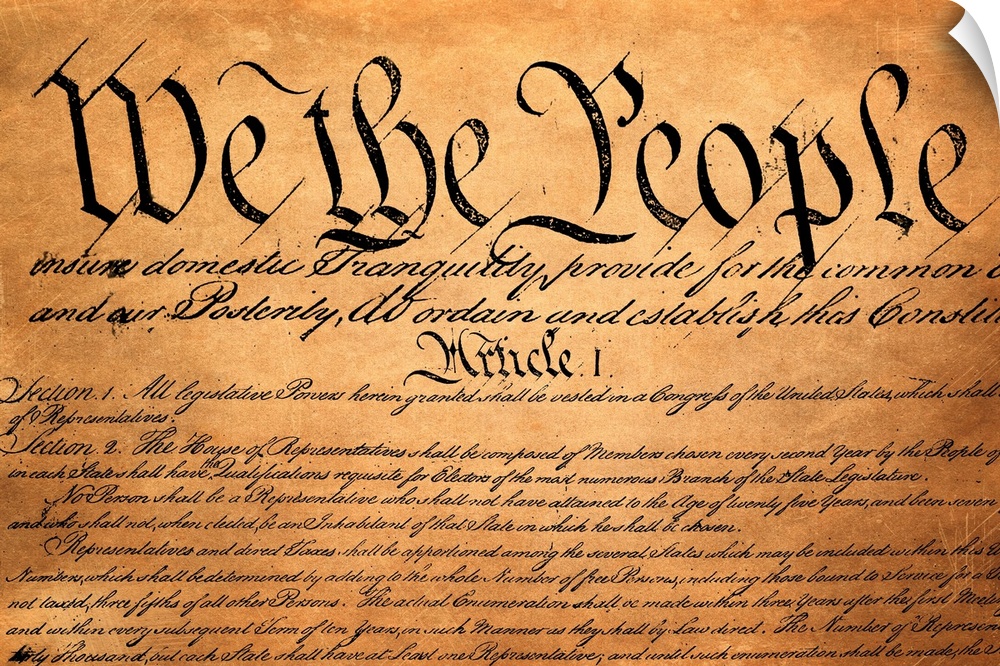 We the People
insure domestic Tranquility, provide for the common
and our Posterity, do ordain and establish this Constitu
Article. I.
Section. 1. All legislative Powers herein granted shall be vested in a Congress of the United States, which shall
of Representatives.
Section. 2. The House of Representatives shall be composed of Members chosen every second Year by the People of
in each State shall have the Qualifications requisite for Electors of the most numerous Branch of the State Legislature.
No Person shall be a Representative who shall not have attained to the Age of twenty five Years, and been seven
and who shall not, when elected, be an Inhabitant of that State in which he shall be chosen.
Representatives and direct Taxes shall be apportioned among the several States which may be included within this
Numbers, which shall be determined by adding to the whole Number of free Persons, including those bound to Service for a
not taxed, three fifths of all other Persons. The actual Enumeration shall be made within three Years after the first Meeti
and within every subsequent Term of ten Years, in such Manner as they shall by Law direct. The Number of Represen
thirty Thousand, but each State shall have at Least one Representative; and until such enumeration shall be made, the